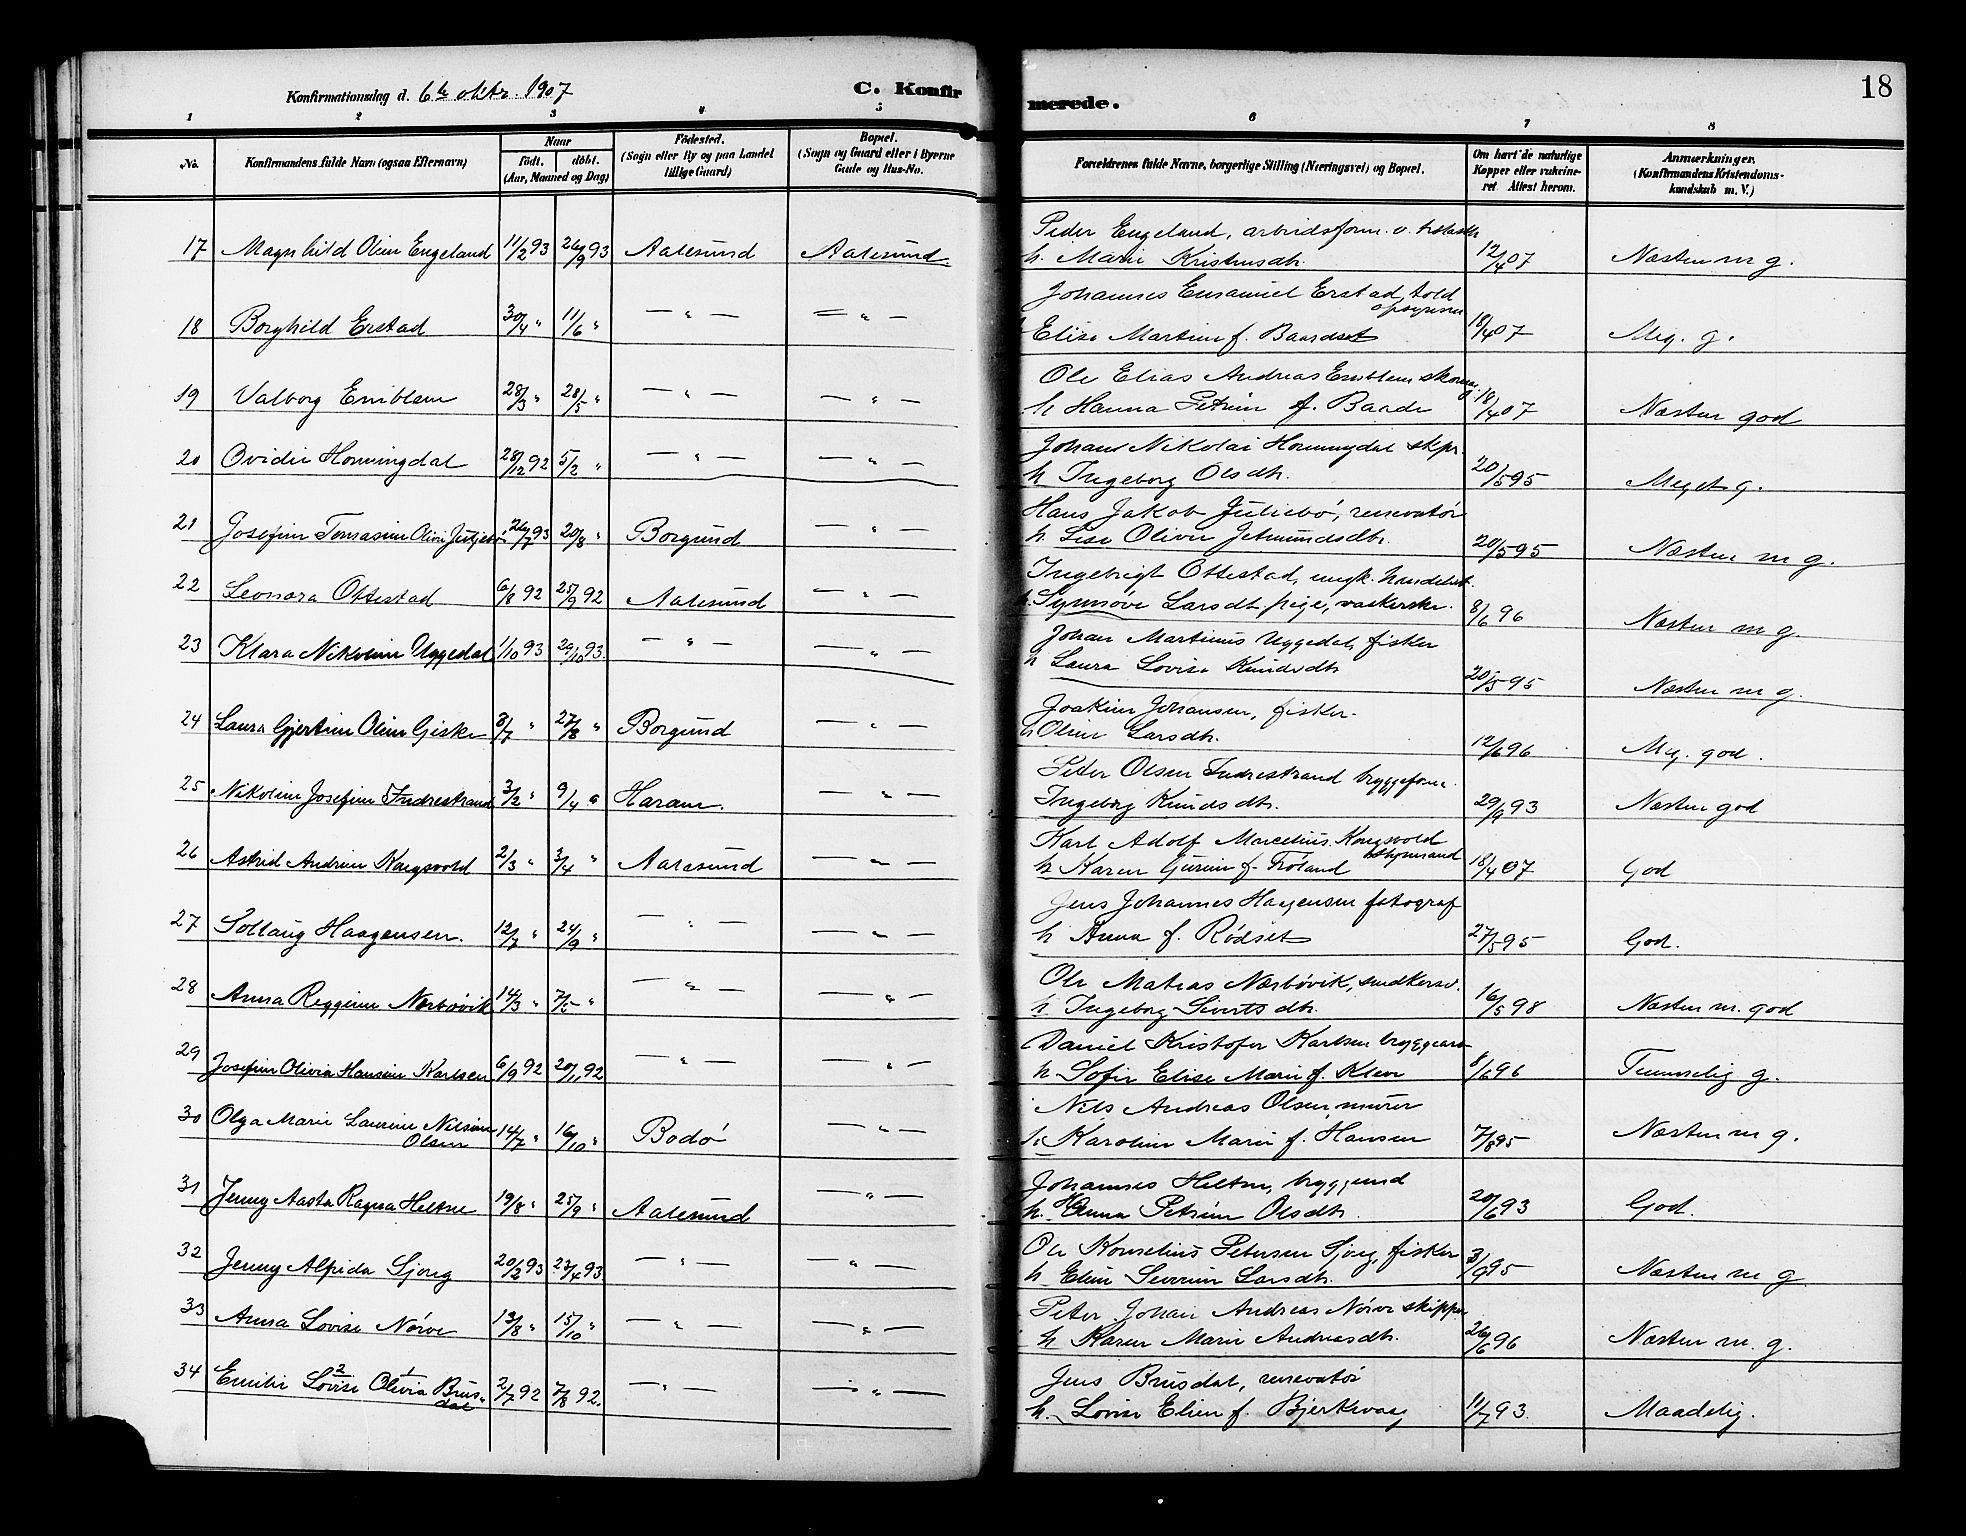 18
Konfirmationsdag d. 6te oktr. 1907
C. Konfirmerede.
1 2 3 4 5 6 7 8
No.
Konfirmandens fulde Navn (ogsaa Efternavn)
Naar
födt. döbt.
(Aar, Maaned og Dag)
Födested.
(Sogn eller By og paa Landet
tillige Gaard)
Bopæl.
(Sogn og Gaard eller i Byerne
Gade og Hus-No.
Forældrenes fulde Navne, borgerlige Stilling (Næringsvei) og Bopæl.
Om havt de naturlige
Kopper eller vakcine-
ret Attest herom.
Anmærkninger.
(Konfirmandens Kristendoms-
kundskab m. V.)
Peder Engeland, arbeidsform.
17 Magnhild Oline Engeland 11/2 93 26/9 93 Aalesund Aalesund h. Marie Kristensdtr. 12/4 07 Næsten m g.
Johannes Emanuel Erstad, told
opsynsm
18 Borghild Erstad 30/4 " 11/6 " — " — — " — Elise Martine f. Baardset 18/4 07 Meg. g.
Ole Elias Andreas Emblem skomag.
19 Valborg Emblem 28/3 " 28/5 " — " — — " — h Hanna Petrine f. Baade 18/4 07 Næsten god
Johan Nikolai Honningdal skpr.
20 Ovidie Honningdal 28/12 92 5/2 " — " — — " — h Ingeborg Olsdtr. 20/5 95 Meget g.
Hans Jakob Juliebö, renovatör
21 Josefine Tomasine Oline Juljebö 26/7 93 20/8 " Borgund — " — h Lise Olivie Jetmundsdtr. 20/5 95 Næsten m g.
Ingebrigt Ottestad, ungk. handelsb.
22 Leonora Ottestad 6/8 92 25/9 92 Aalesund — " — h. Synnöve Larsdtr. pige, vaskerske. 8/6 96 Næsten m g.
Johan Martinus Uggedal, fisker
23 Klara Nikoline Uggedal 1/10 93 29/10 93. — " — — " — h Laura Lovise Knudsdtr. 20/5 95 Næsten m g.
Joakim Johansen, fisker.
24 Laura Gjertine Oline Giske 3/7 " 27/8 " Borgund — " — h Oline Larsdtr. 12/6 96 Meg. god.
Peter Olsen Indrestrand bryggeform.
25 Nikoline Josefine Indrestrand 3/2 " 9/4 " Haram. — " — Ingeborg Knudsdtr. 29/9 93 Næsten god
Karl Adolf Marcelius Kongsvold
26 Astrid Andrine Kongsvold 2/3 " 3/4 " Aalesund — " — h Karen Gurine f. Fröland 18/4 07 God
Jens Johannes Haagensen fotograf
27 Soltaug Haagensen. 12/7 " 24/9 " — " — — " — h Anna f. Rödset 27/5 95 God.
Ole Matias Næsbövik, snedkersv.
28 Anna Reggine Næsbövik 14/3 " 7/5 " — " — — " — h Ingeborg Sivertsdtr. 16/5 98 Næsten m. god
Daniel Kristofer Karlsen bryggearb
29 Josefine Olivia Hansine Karlsen 6/9 92 20/11 92 — " — — " — h. Sofie Elise Marie f. Kleve 8/6 96 Temmelig g.
Nils Andreas Olsen, murer
30 Olga Marie Laurine Nilsine
Olsen 14/7 " 16/10 " Bodö — " — h. Karoline Marie f. Hansen 7/8 95 Næsten m g.
Johannes Heltne, bryggemd
31 Jenny Aasta Ragna Heltne 19/8 " 25/9 " Aalesund — " — h. Anna Petrine Olsdtr. 20/6 93 God.
Ole Konselius Petersen Sjong, fisker
32 Jenny Alfida Sjong 20/2 93 23/4 93 — " — — " — h Eline Severine Larsdtr. 3/9 95 Næsten m g
Peter Johan Andreas Nörve skipper
33 Anna Lovise Nörve 13/8 " 15/10 " — " — — " — h Karen Marie Andreasdtr. 26/6 96 Næsten m. g.
Jens Brusdal, renovatör
34 Emilie Lovise Olivia Brus-
dal 2/7 92 7/8 92. — " — — " — h. Lovise Eline f. Bjerkevaag 11/7 93. Maadelig.